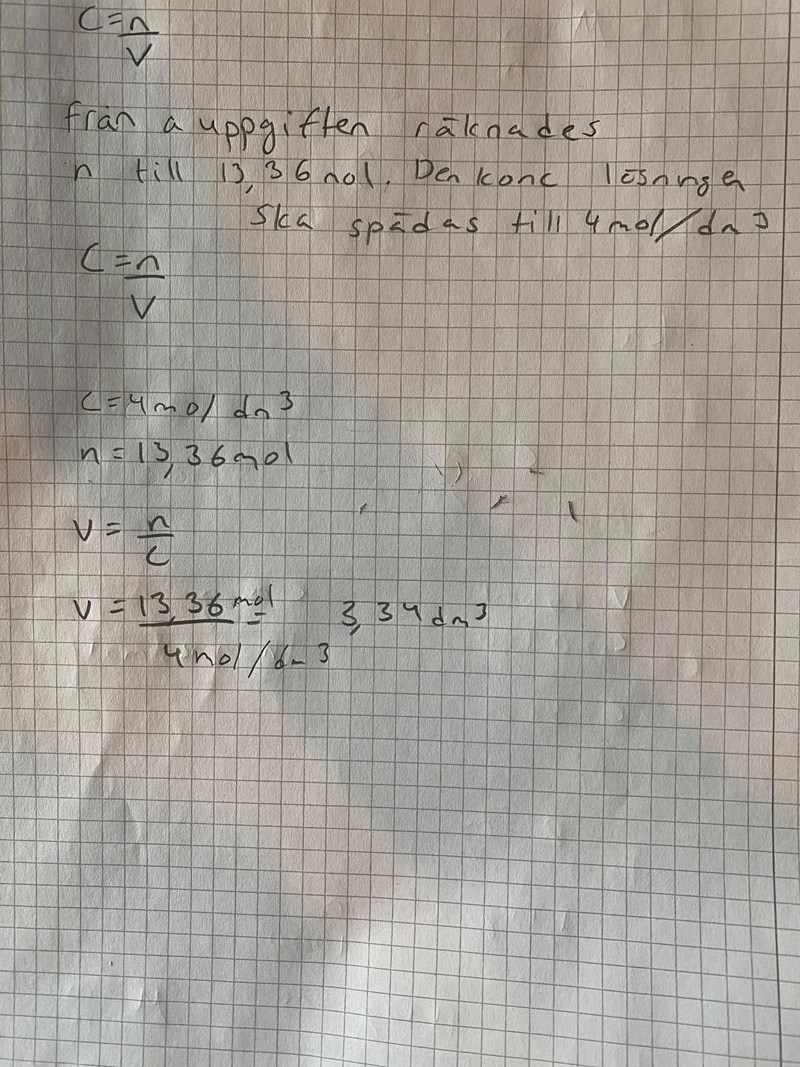 C=n
V
från a uppgiften räknades
n till 13,36 mol. Den konc lösningen
ska spädas till 4 mol/dm3
C=n
V
C=4mol/dm3
n=13,36mol
V = n
C
V = 13,36 mol 3,34 dm3
4 mol/dm3